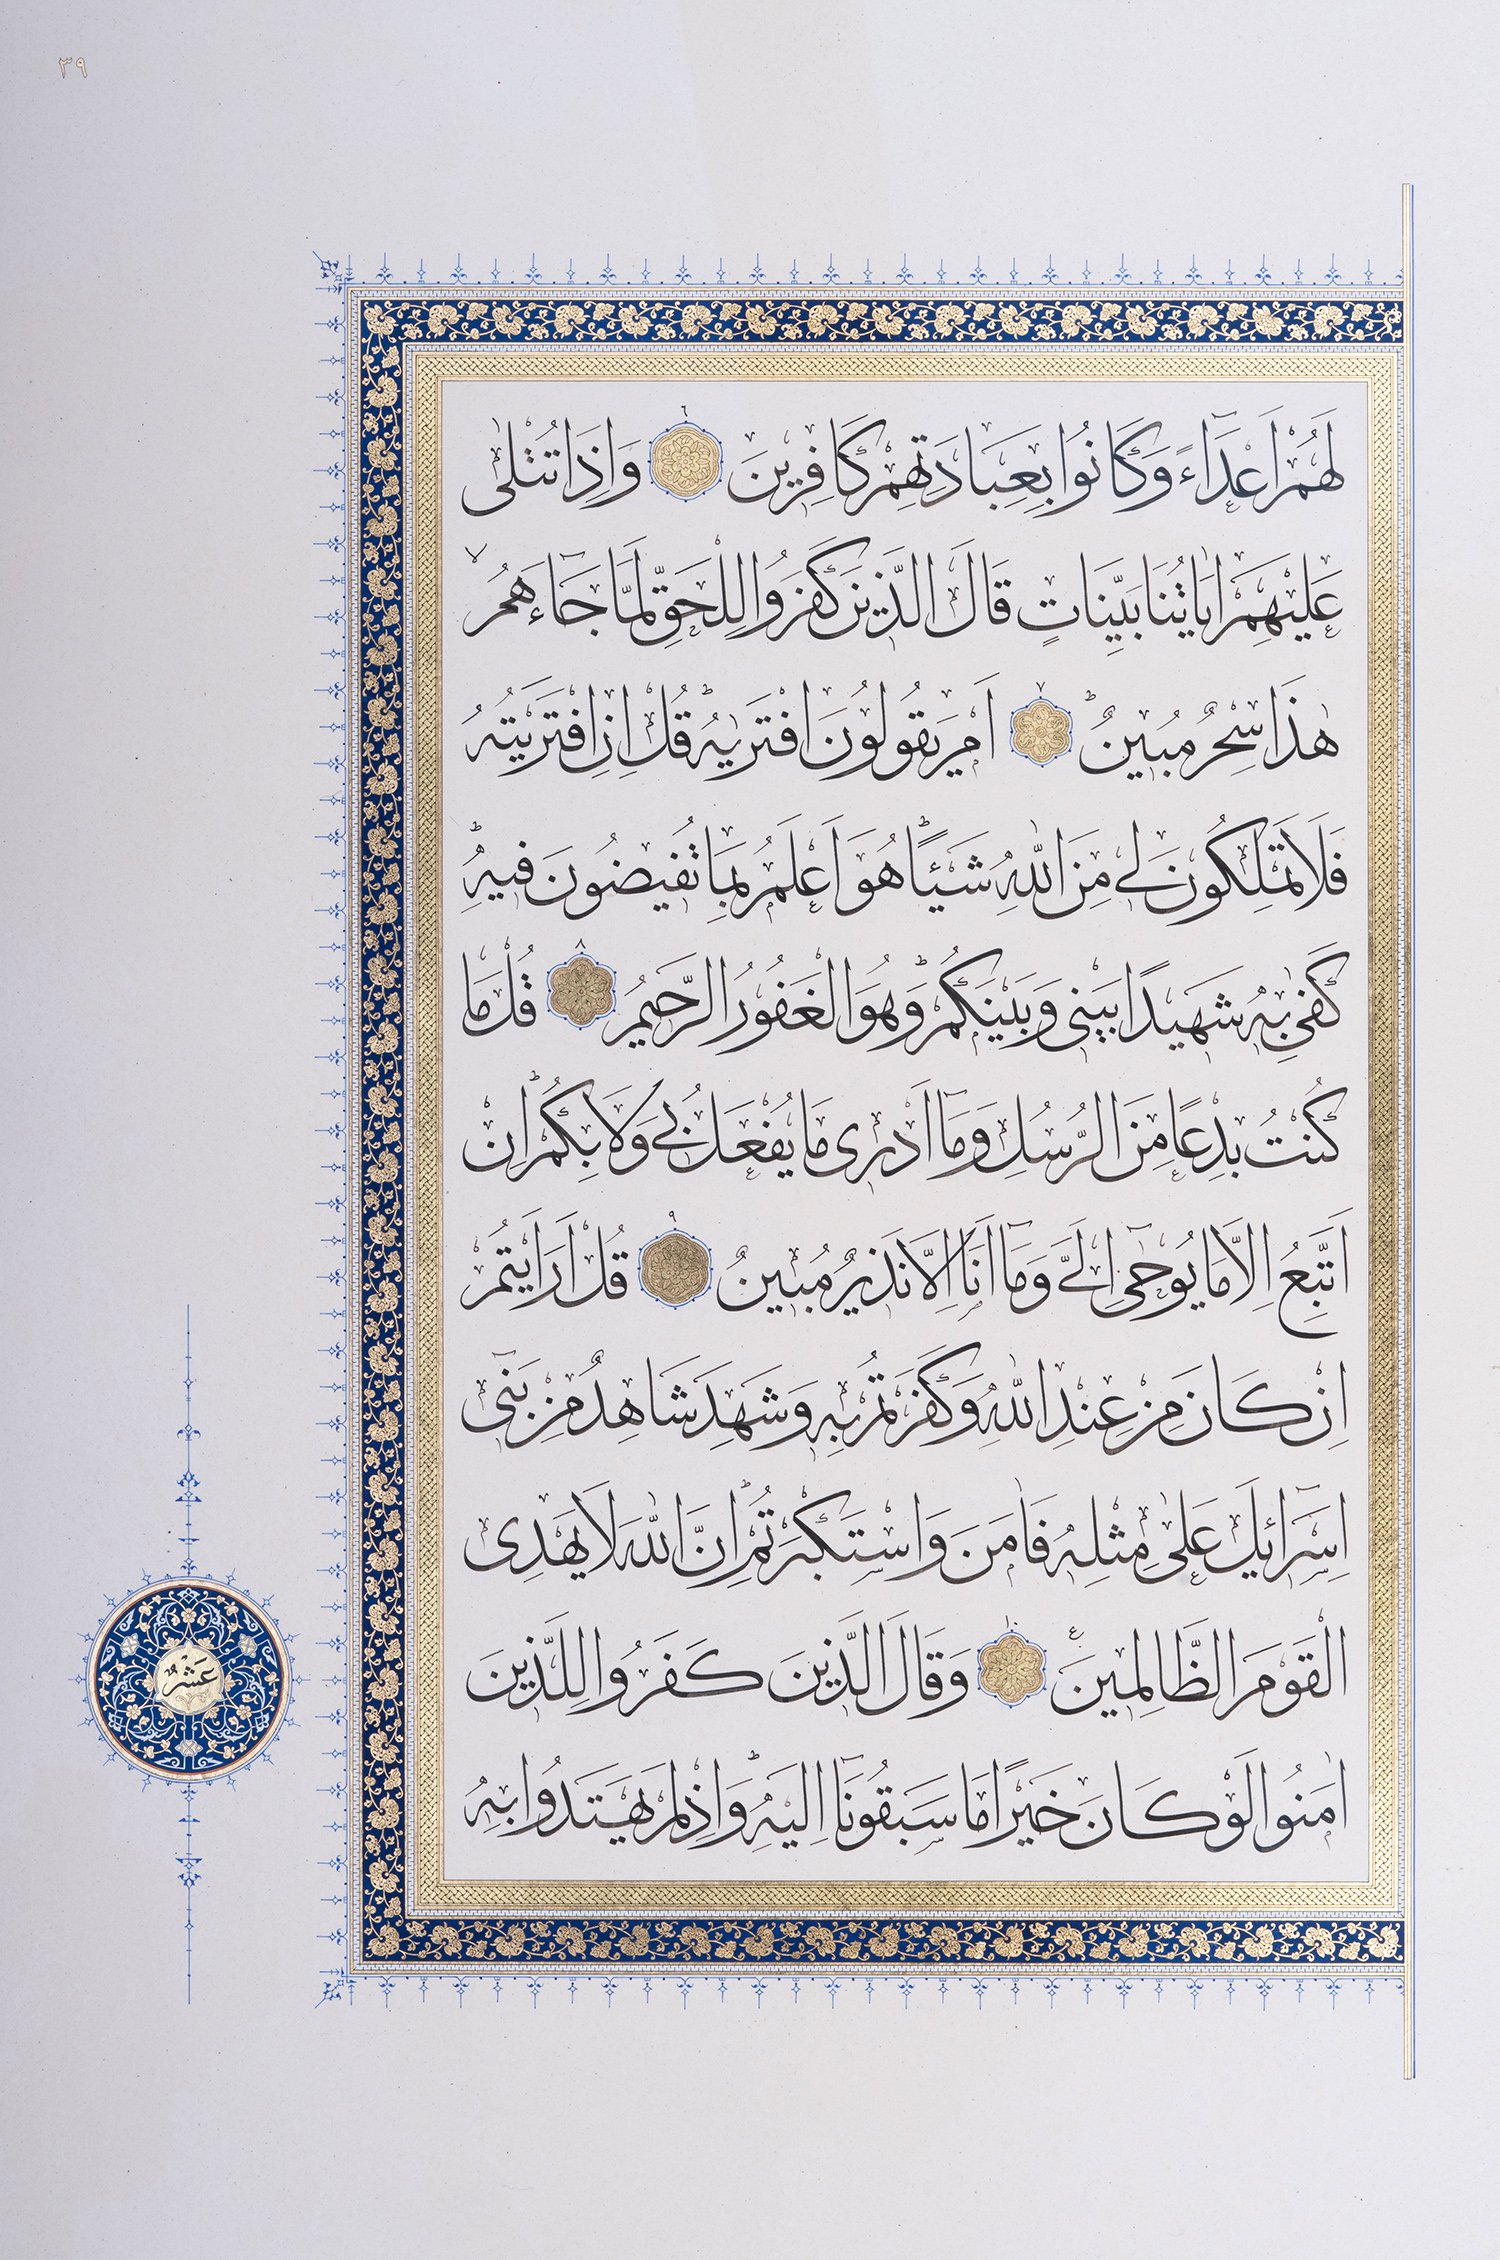 ٣٩
لَهُمْ اَعْدَٓاءً وَكَانُوا بِعِبَادَتِهِمْ كَافِر۪ينَ ٦ وَاِذَا تُتْلٰى
عَلَيْهِمْ اٰيَاتُنَا بَيِّنَاتٍ قَالَ الَّذ۪ينَ كَفَرُوا لِلْحَقِّ لَمَّا جَٓاءَهُمْۙ
هٰذَا سِحْرٌ مُب۪ينٌۜ ٧ اَمْ يَقُولُونَ افْتَرٰيهُۜ قُلْ اِنِ افْتَرَيْتُهُ
فَلَا تَمْلِكُونَ ل۪ي مِنَ اللّٰهِ شَيْـًٔاۜ هُوَ اَعْلَمُ بِمَا تُف۪يضُونَ ف۪يهِۜ
كَفٰى بِه۪ شَه۪يدًا بَيْن۪ي وَبَيْنَكُمْۜ وَهُوَ الْغَفُورُ الرَّح۪يمُ ٨ قُلْ مَا
كُنْتُ بِدْعًا مِنَ الرُّسُلِ وَمَٓا اَدْر۪ي مَا يُفْعَلُ ب۪ي وَلَا بِكُمْۜ اِنْ
اَتَّبِعُ اِلَّا مَا يُوحٰٓى اِلَيَّ وَمَٓا اَنَا۬ اِلَّا نَذ۪يرٌ مُب۪ينٌ ٩ قُلْ اَرَاَيْتُمْ
اِنْ كَانَ مِنْ عِنْدِ اللّٰهِ وَكَفَرْتُمْ بِه۪ وَشَهِدَ شَاهِدٌ مِنْ بَن۪ٓي
اِسْرَٓائ۪لَ عَلٰى مِثْلِه۪ فَاٰمَنَ وَاسْتَكْبَرْتُمْۜ اِنَّ اللّٰهَ لَا يَهْدِي
الْقَوْمَ الظَّالِم۪ينَ۟ ١٠ وَقَالَ الَّذ۪ينَ كَفَرُوا لِلَّذ۪ينَ
اٰمَنُوا لَوْ كَانَ خَيْرًا مَا سَبَقُونَٓا اِلَيْهِۜ وَاِذْ لَمْ يَهْتَدُوا بِه۪
عَشْرٌ